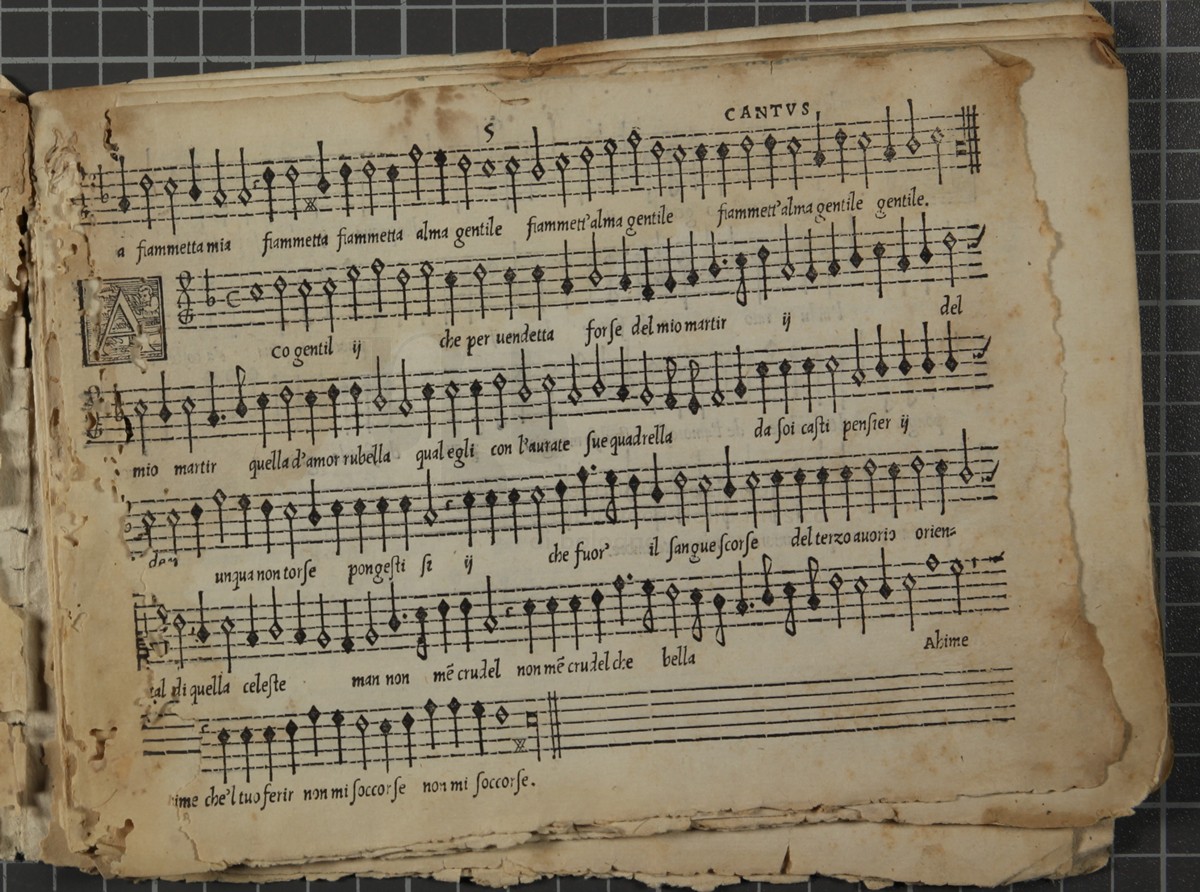 5 CANTVS
a fiammetta mia fiammetta fiammetta alma gentile fiammett'alma gentile fiammett'alma gentile gentile.
A
Co gentil ij che per uendetta forſe del mio martir ij del
mio martir quella d'amor rubella qual egli con l'aurate ſue quadrella da ſoi caſti penſier ij
unqua non torſe pongeſti ſi ij che fuor' il ſangue ſcorſe del terzo auorio orien=
tal di quella celeſte man non mẽ crudel non mẽ crudel che bella Ahime
che'l tuo ferir non mi ſoccorſe non mi ſoccorſe.